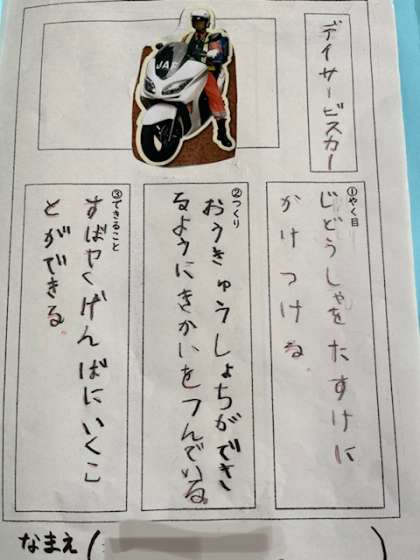 デイサービスカー
JAF
①やく目
じどうしゃをたすけに
かけつける
②つくり
おうきゅうしょちができ
るようにきかいをつんでいる。
③できること
すばやくげんばにいくこ
とができる。
なまえ(